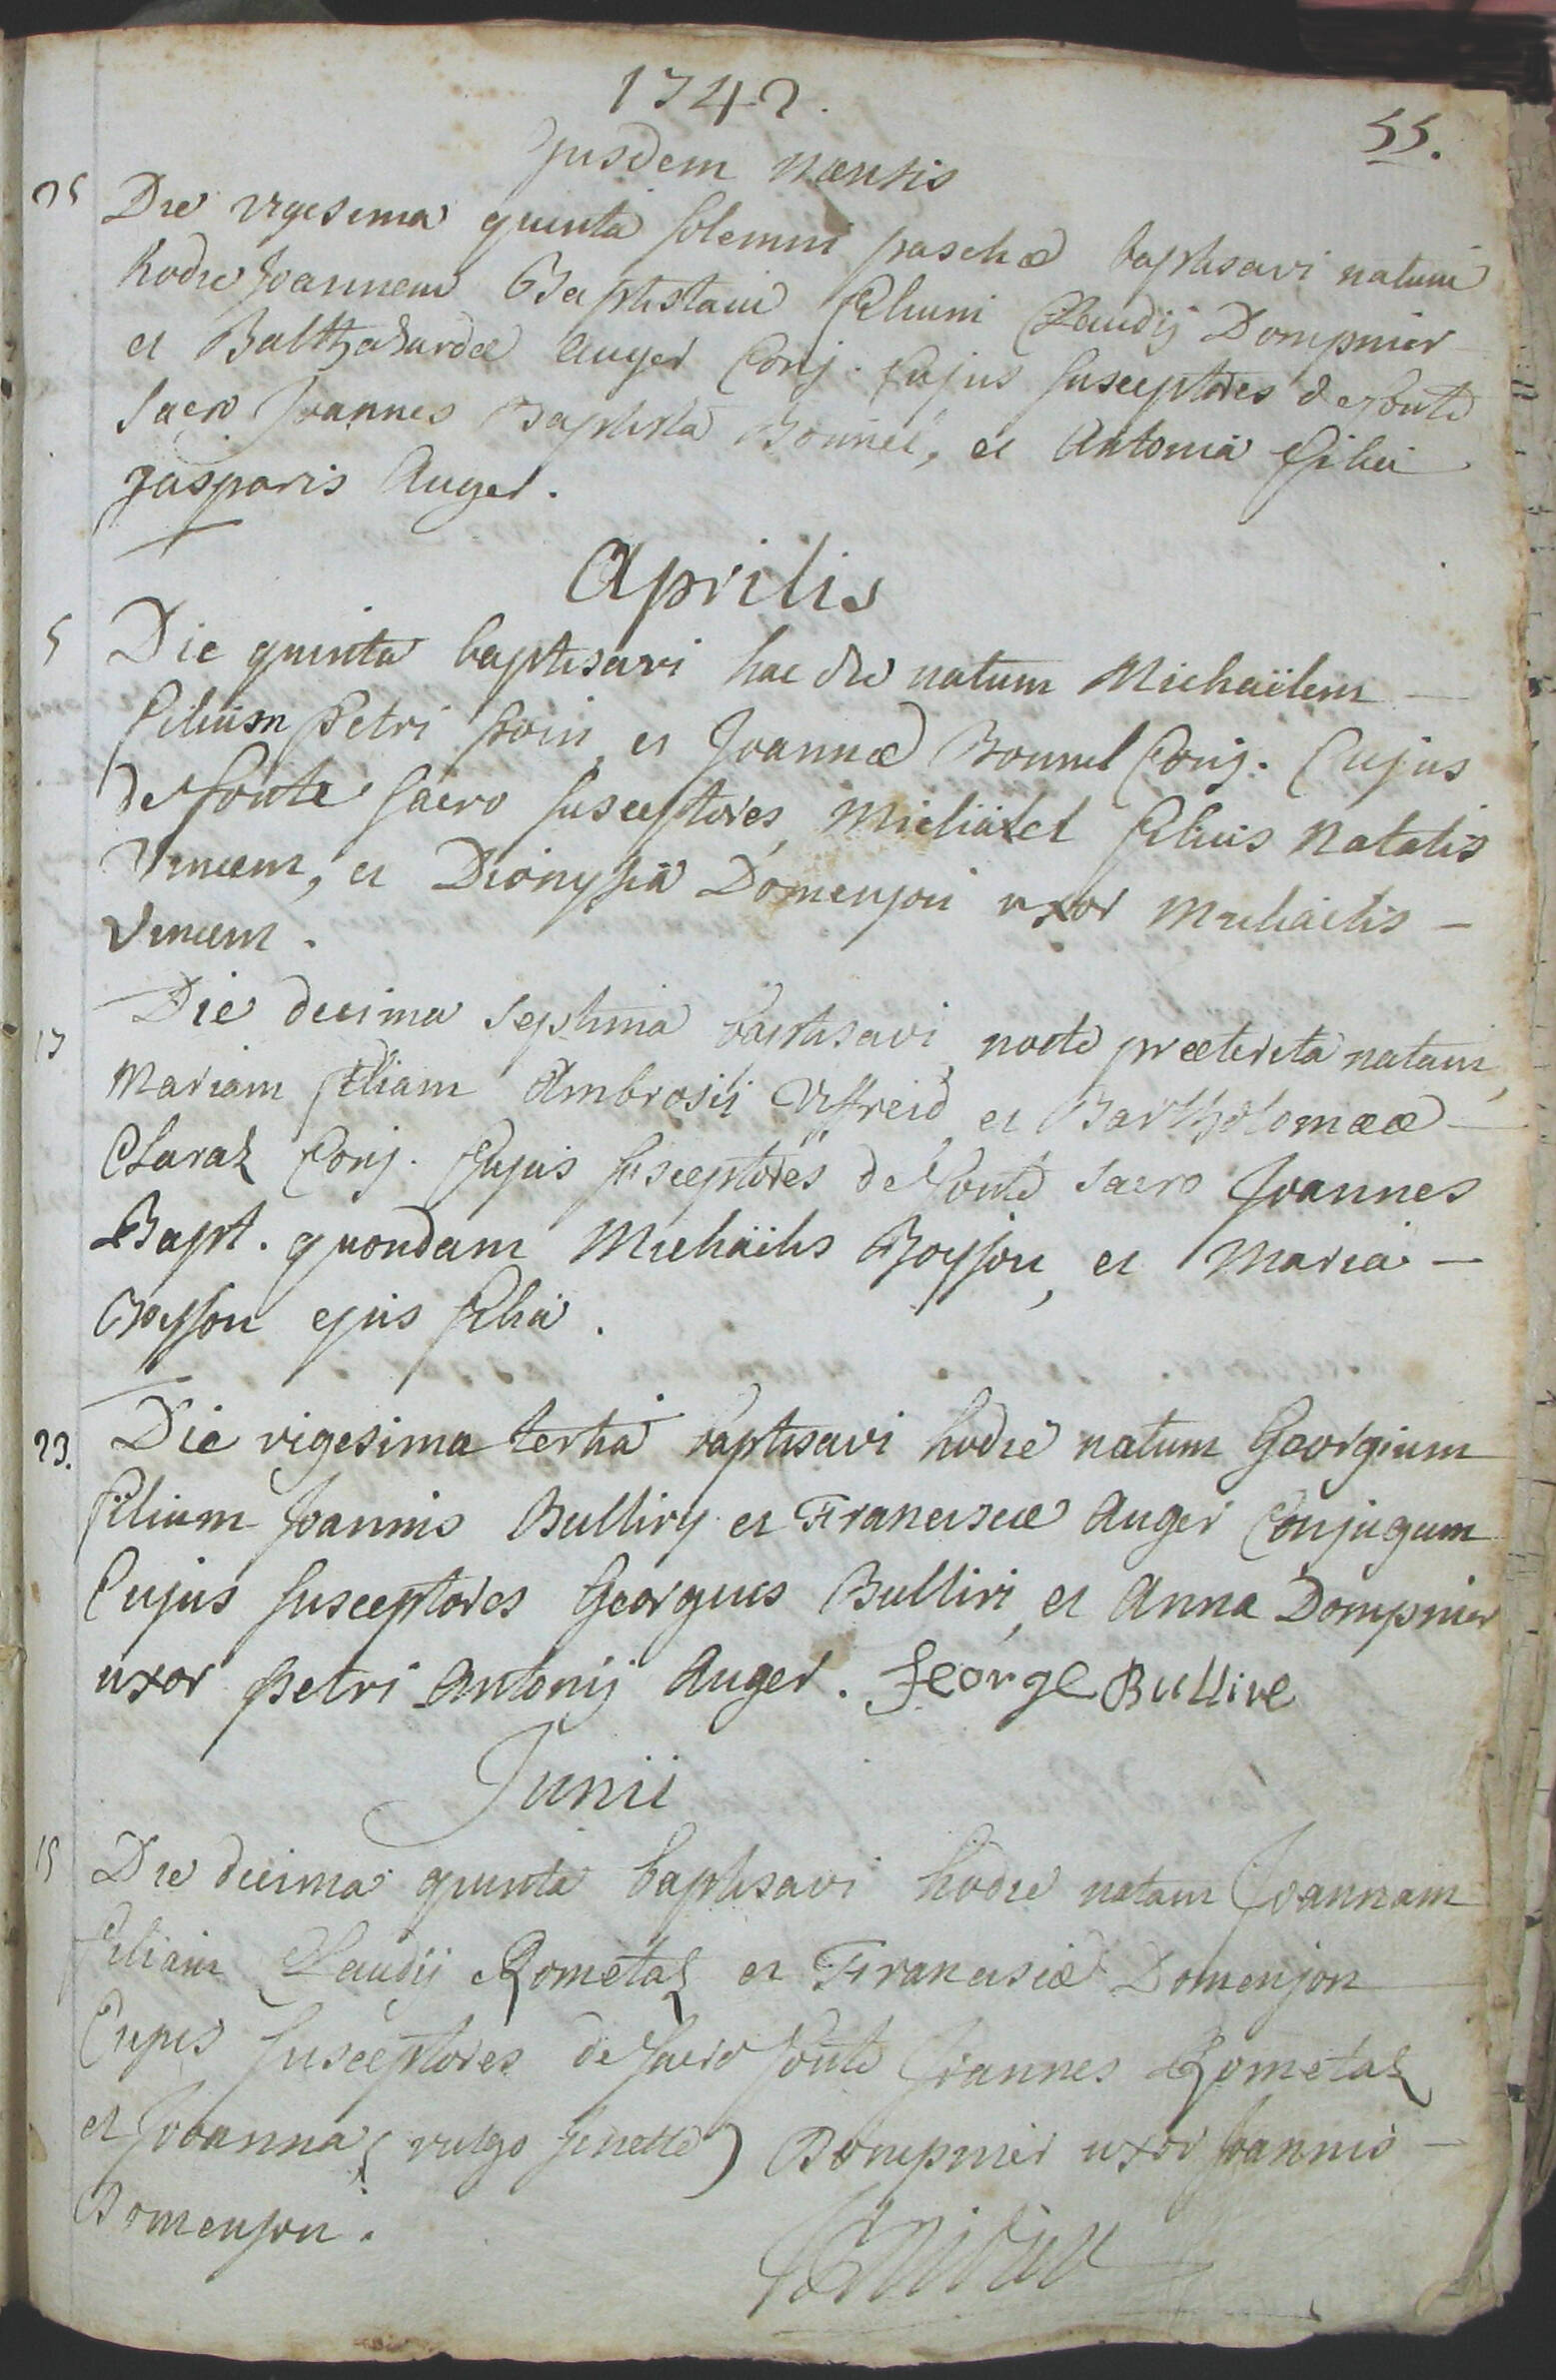 1742.
55.
Ejusdem mensis
25 Die vigesima quinta solemni paschæ baptisavi natum
hodie Joannem Baptistam filium Claudij Dompnier
et Balthazardæ Auger Conj. Cujus susceptores de fonte
sacro Joannes Baptista Bonnel, et Antonia filia
gasparis Auger.
Aprilis
5 Die quinta baptisavi hac die natum Michaëlem -
filium Petri et Joannæ Bonnel Conj. Cujus
de fonte sacro susceptores, Michäel filius Natalis
Vincem, et Dionysia Domenjon uxor Michaëlis -
Vincem.
17 Die decima septima baptisavi, nocte præterita natam,
Mariam filiam Ambrosii Viffreid et Bartholomææ -
Claraz Conj. Cujus susceptores de fonte sacro Joannes
Bapt. quondam Michaëlis Boysson, et Maria -
Boysson ejus filia.
23. Die vigesima tertia baptisavi hodie natum Georgium
filium Joannis Bulliry et Franciscæ Auger Conjugum
Cujus susceptores Georgius Bulliri, et Anna Dompnier
uxor petri Antonij Auger. george Bullire
Junii
15 Die decima quinta baptisavi hodie natam Joannam
filiam Claudij Rometaz et Franciscæ Domenjon
Cujus susceptores de sacro fonte Joannes Rometaz
et Joanna (vulgo Jenette) Dompnier uxor Joannis -
Domenjon.